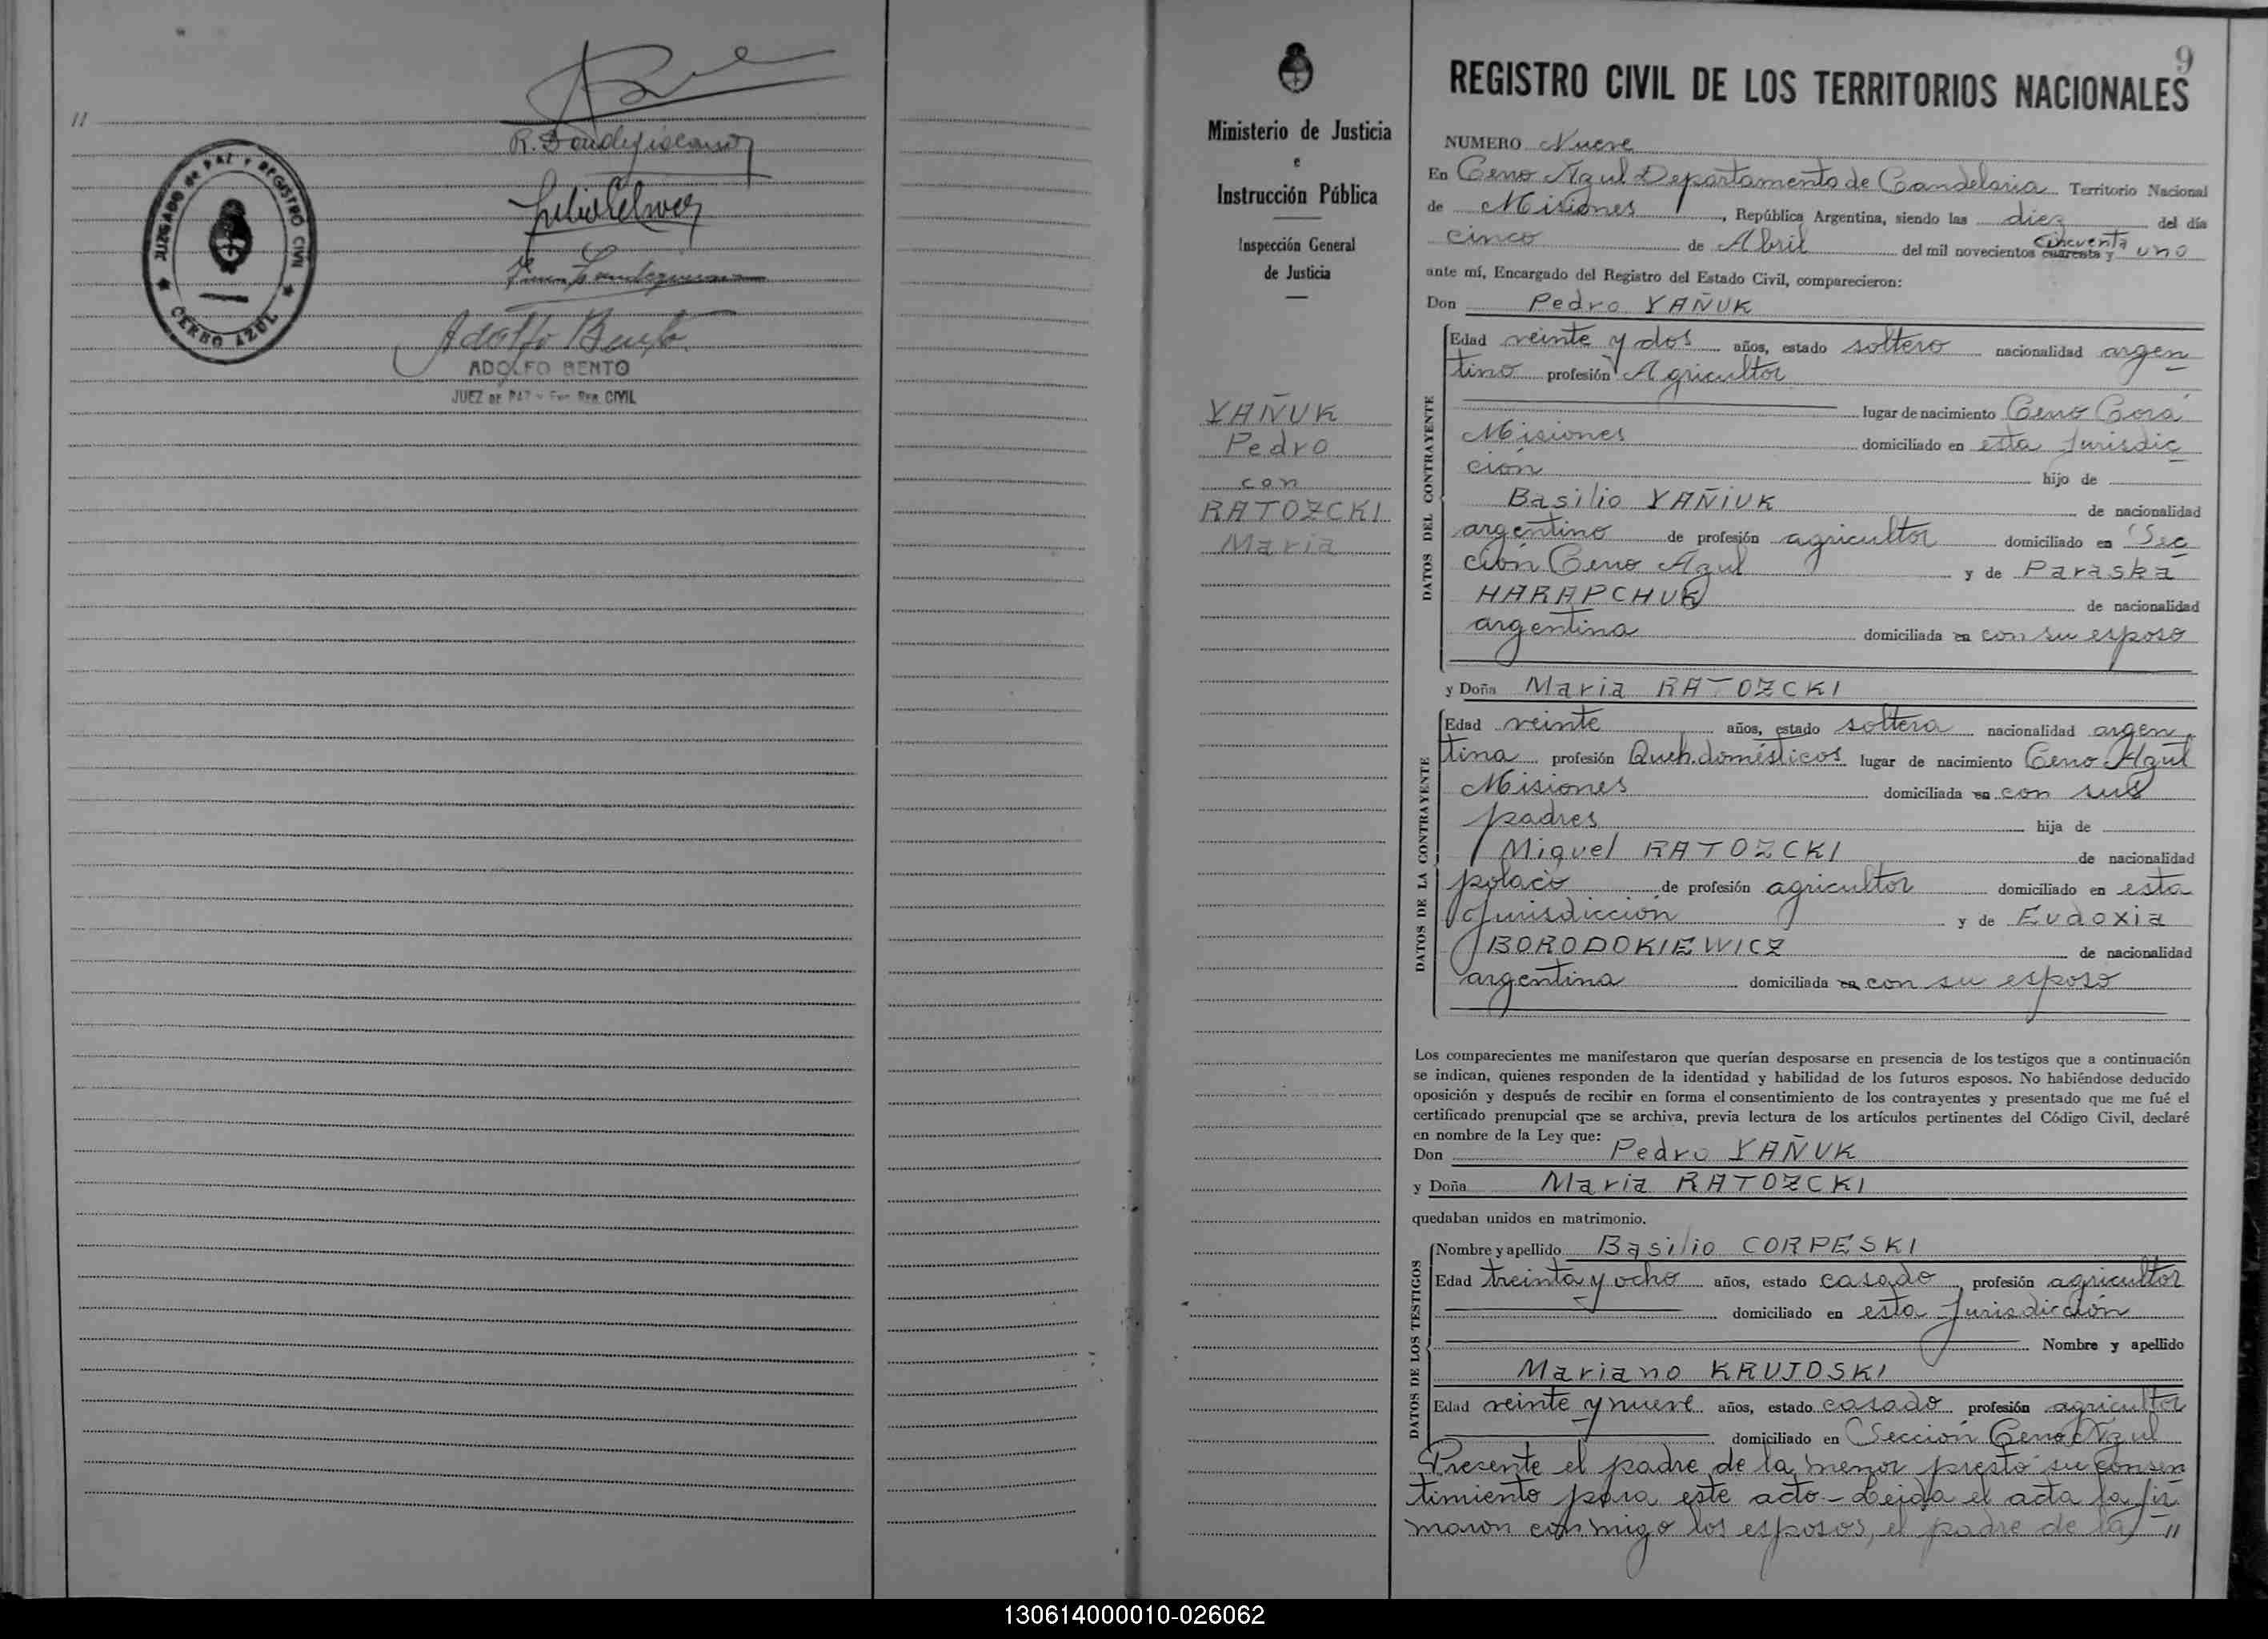 11
R. Dondeziscano
JUZGADO de PAZ y REGISTRO CIVIL
CERRO AZUL
Adolfo Bento
ADOLFO BENTO
JUEZ DE PAZ y Enc. Reg. CIVIL
Ministerio de Justicia
e
Instrucción Pública
Inspección General
de Justicia
YAÑUK
Pedro
con
RATOZCKI
Maria
9
REGISTRO CIVIL DE LOS TERRITORIOS NACIONALES
NUMERO Nueve
En Cerro Azul Departamento de Candelaria Territorio Nacional
de Misiones, República Argentina, siendo las diez del día
cinco de Abril del mil novecientos cuarenta y cincuenta uno
ante mí, Encargado del Registro del Estado Civil, comparecieron:
Don Pedro YAÑUK
DATOS DEL CONTRAYENTE
Edad veinte y dos años, estado soltero nacionalidad argen
tino profesión Agricultor
lugar de nacimiento Cerro Corá
Misiones domiciliado en esta Jurisdic
ción hijo de
Basilio YAÑIUK de nacionalidad
argentino de profesión agricultor domiciliado en Sec
ción Cerro Azul y de Paraska
HARAPCHUK de nacionalidad
argentina domiciliada en con su esposo
y Doña Maria RATOZCKI
DATOS DE LA CONTRAYENTE
Edad veinte años, estado soltera nacionalidad argen
tina profesión Queh. domésticos lugar de nacimiento Cerro Azul
Misiones domiciliada en con sus
padres hija de
Miguel RATOZCKI de nacionalidad
polaco de profesión agricultor domiciliado en esta
Jurisdicción y de Eudoxia
BORODOKIEWICZ de nacionalidad
argentina domiciliada en con su esposo
Los comparecientes me manifestaron que querían desposarse en presencia de los testigos que a continuación
se indican, quienes responden de la identidad y habilidad de los futuros esposos. No habiéndose deducido
oposición y después de recibir en forma el consentimiento de los contrayentes y presentado que me fué el
certificado prenupcial que se archiva, previa lectura de los artículos pertinentes del Código Civil, declaré
en nombre de la Ley que:
Don Pedro YAÑUK
y Doña Maria RATOZCKI
quedaban unidos en matrimonio.
DATOS DE LOS TESTIGOS
Nombre y apellido Basilio CORPESKI
Edad treinta y ocho años, estado casado, profesión agricultor
domiciliado en esta Jurisdicción
Nombre y apellido
Mariano KRUJOSKI
Edad veinte y nueve años, estado casado profesión agricultor
domiciliado en Sección Cerro Azul
Presente el padre de la menor prestó su consen
timiento para este acto - Leida el acta la fir
maron conmigo los esposos, el padre de la 11
130614000010-026062